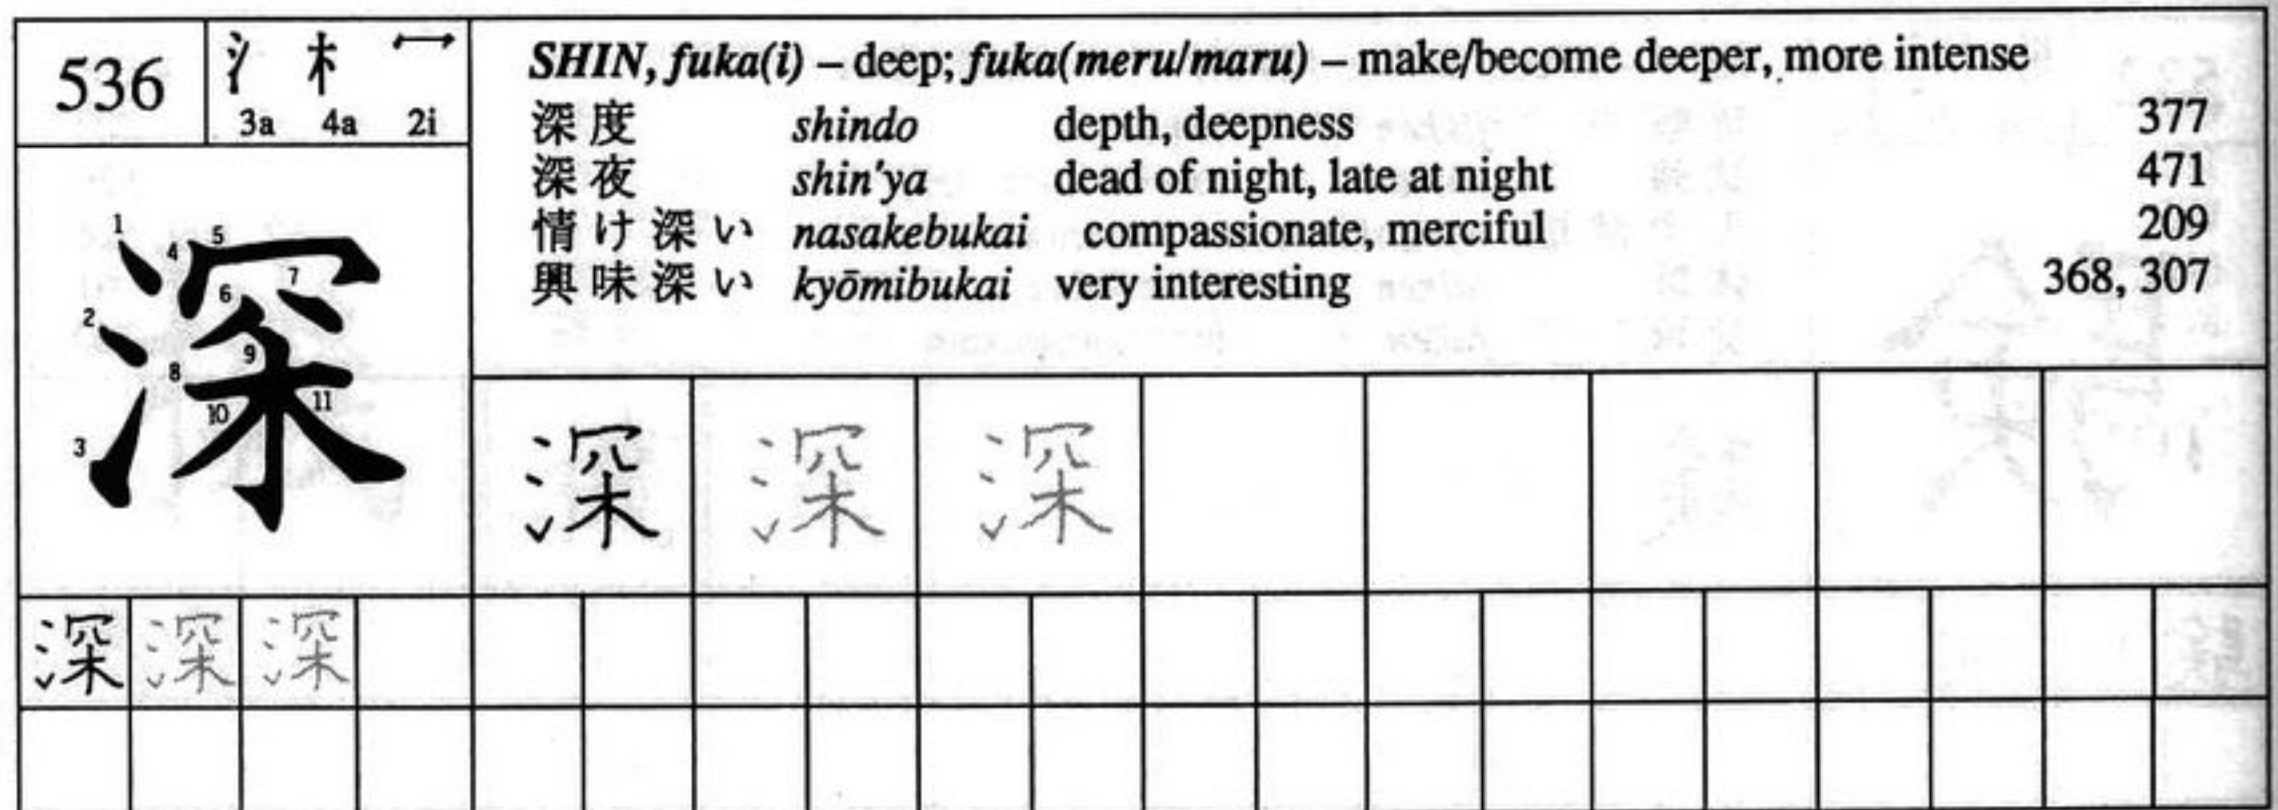 536
氵 木 冖
3a 4a 2i
SHIN, fuka(i) – deep; fuka(meru/maru) – make/become deeper, more intense
深度 shindo depth, deepness 377
深夜 shin'ya dead of night, late at night 471
情け深い nasakebukai compassionate, merciful 209
興味深い kyōmibukai very interesting 368, 307
深
1 2 3 4 5 6 7 8 9 10 11
深 深 深
深 深 深